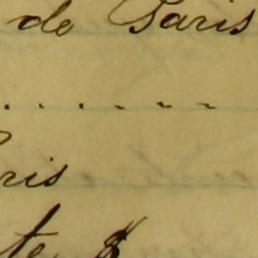 de Paris
......
ris
te